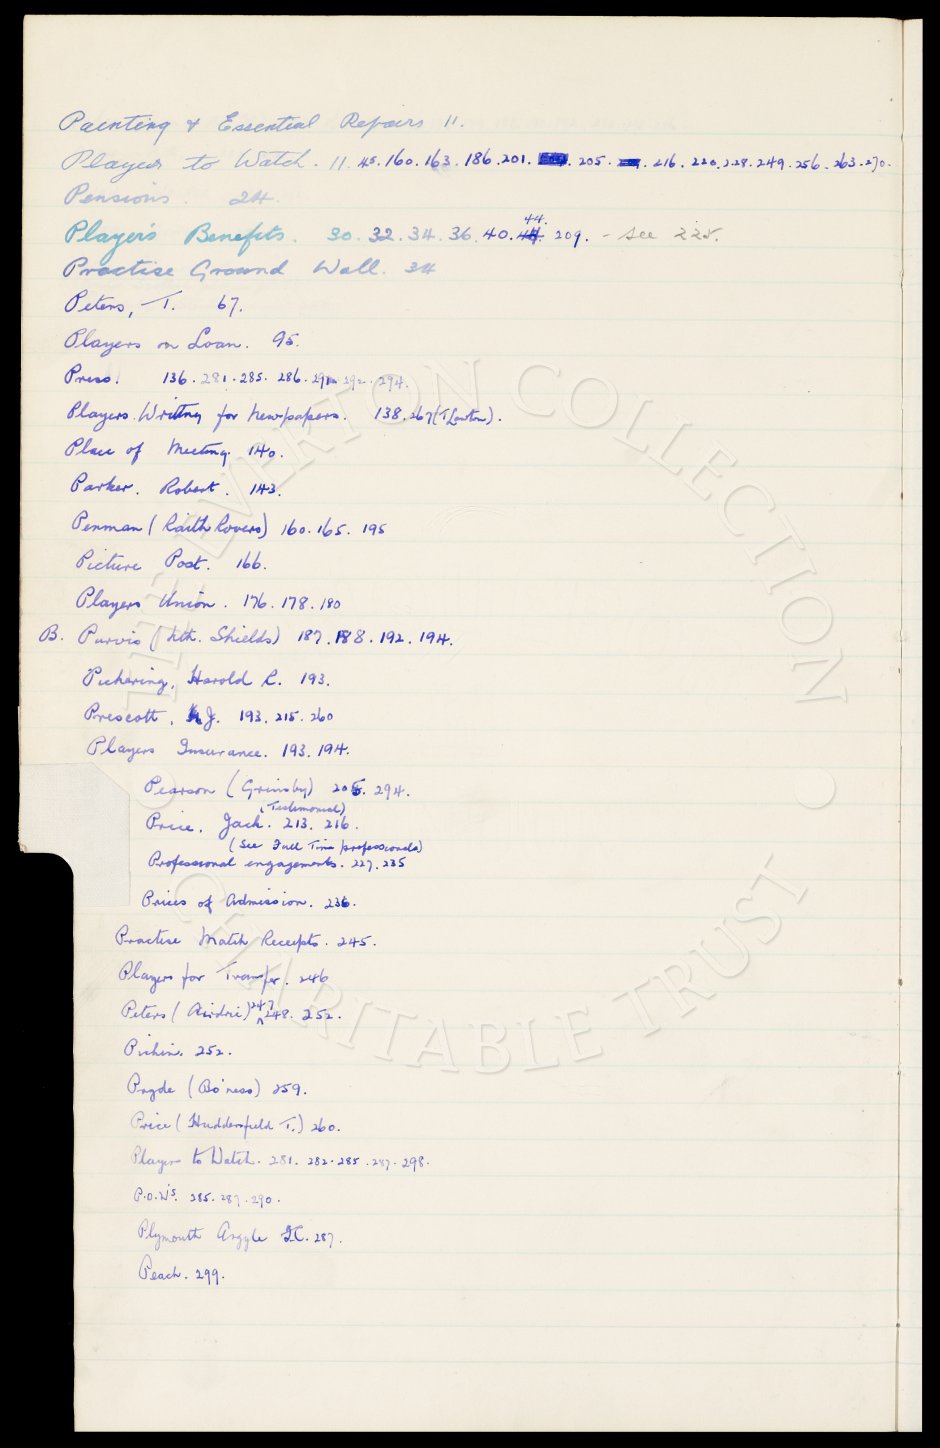 Painting & Essential Repairs 11.
Players to Watch. 11. 45. 160. 163. 186. 201. 205. 216. 220. 228. 249. 256. 263. 270.
Pensions. 24.
44.
Player's Benefits. 30. 32. 34. 36. 40. 44. 209. - See 225.
Practise Ground Wall. 34
Peters, T. 67.
Players on Loan. 95.
Press. 136. 281. 285. 286. 291. 292. 294.
Players Writing for Newspapers. 138. 267 (T. Lawton).
Place of Meeting. 140.
Parker. Robert. 143.
Penman (Raith Rovers) 160. 165. 195
Picture Post. 166.
Players Union. 176. 178. 180
B. Purvis (Nth. Shields) 187. 188. 192. 194.
Pickering, Harold R. 193.
Prescott, J. 193. 215. 260
Players Insurance. 193. 194.
Pearson (Grimsby) 294.
(Testimonial)
Price. Jack. 213. 216.
(See Full Time professionals)
Professional engagements. 227. 235
Prices of Admission. 236.
Practise Match Receipts. 245.
Players for Transfer. 246
Peters (Airdrie) 247 248. 252.
252.
Pryde (Bo'ness) 259.
Price (Huddersfield T.) 260.
Players to Watch. 281. 282. 285. 287. 298.
P.O.W's. 285. 287. 290.
Plymouth Argyle F.C. 287.
Peach. 299.
THE EVERTON COLLECTION
CHARITABLE TRUST